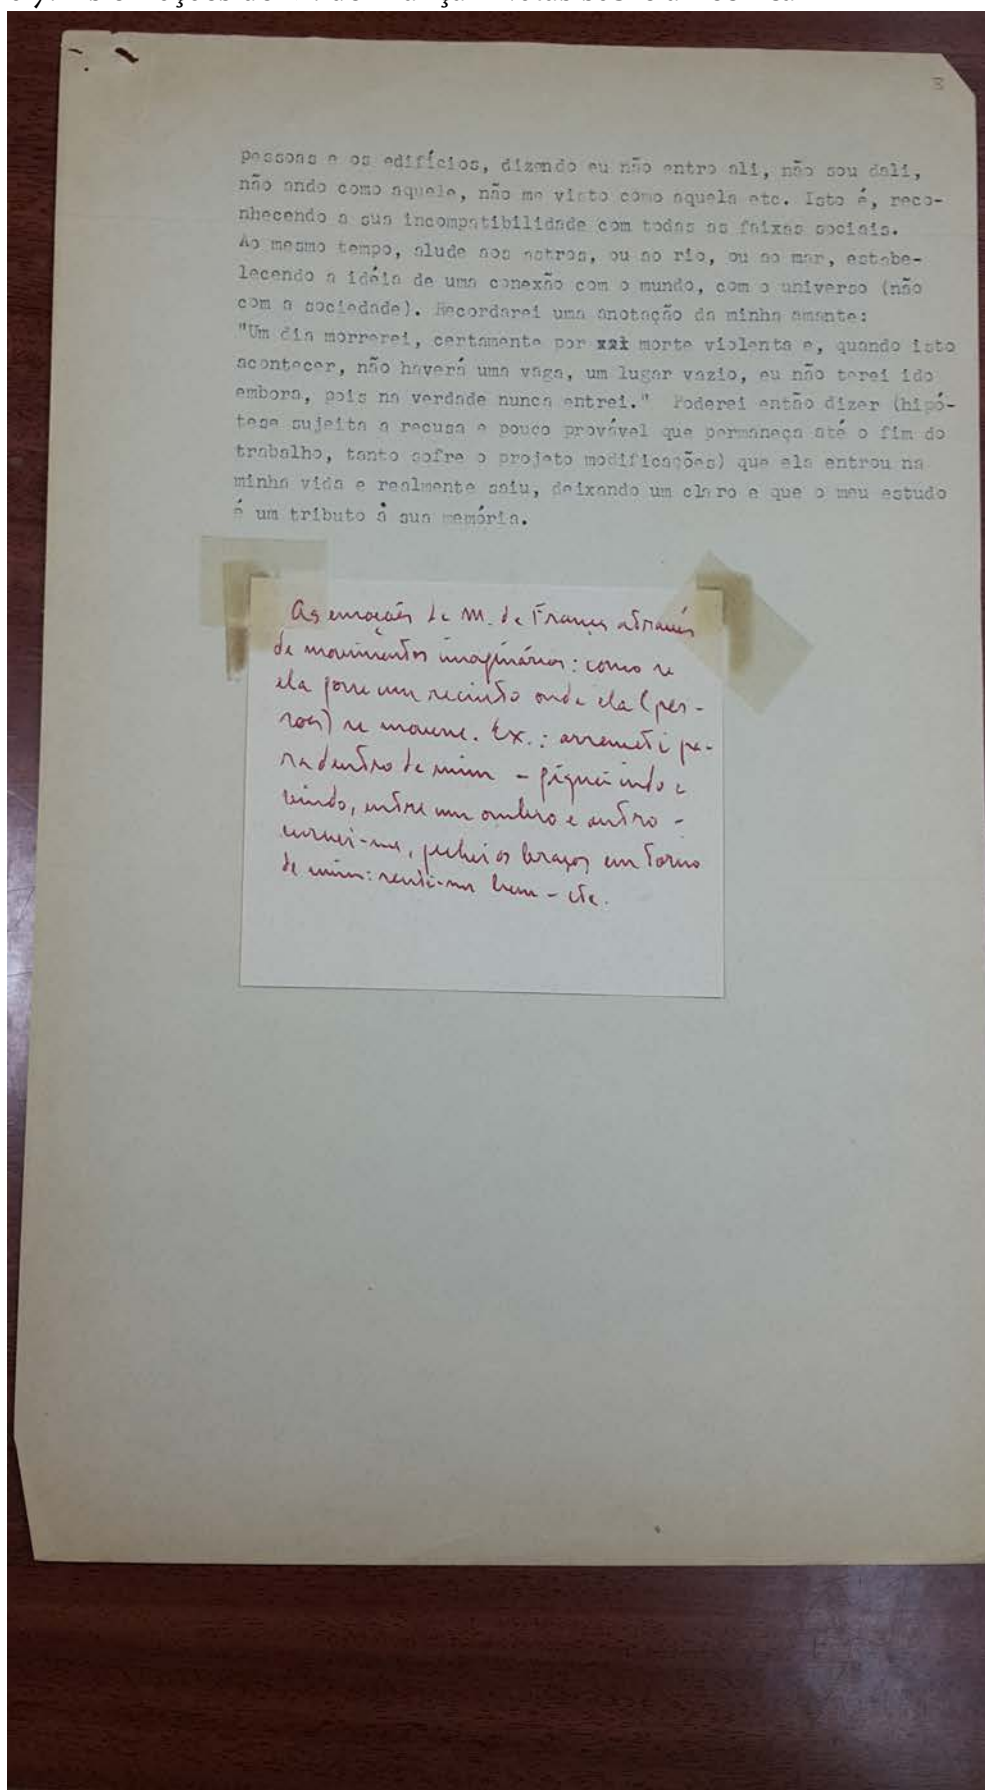 8
pessoas e os edifícios, dizendo eu não entro ali, não sou dali,
não ando como aquele, não me visto como aquela etc. Isto é, reco-
nhecendo a sua incompatibilidade com todas as faixas sociais.
Ao mesmo tempo, alude aos astros, ou ao rio, ou ao mar, estabe-
lecendo a idéia de uma conexão com o mundo, com o universo (não
com a sociedade). Recordarei uma anotação da minha amante:
"Um dia morrerei, certamente por xxx morte violenta e, quando isto
acontecer, não haverá uma vaga, um lugar vazio, eu não terei ido
embora, pois na verdade nunca entrei." Poderei então dizer (hipó-
tese sujeita a recusa e pouco provável que permaneça até o fim do
trabalho, tanto sofre o projeto modificações) que ela entrou na
minha vida e realmente saiu, deixando um claro e que o meu estudo
é um tributo à sua memória.
As emoções de M. de França através
de movimentos imaginários: como se
ela fosse um recinto onde ela (pes-
soa) se movesse. Ex.: arremeti pa-
ra dentro de mim - fiquei indo e
vindo, entre um ombro e outro -
curvei-me, fechei os braços em torno
de mim: senti-me bem - etc.